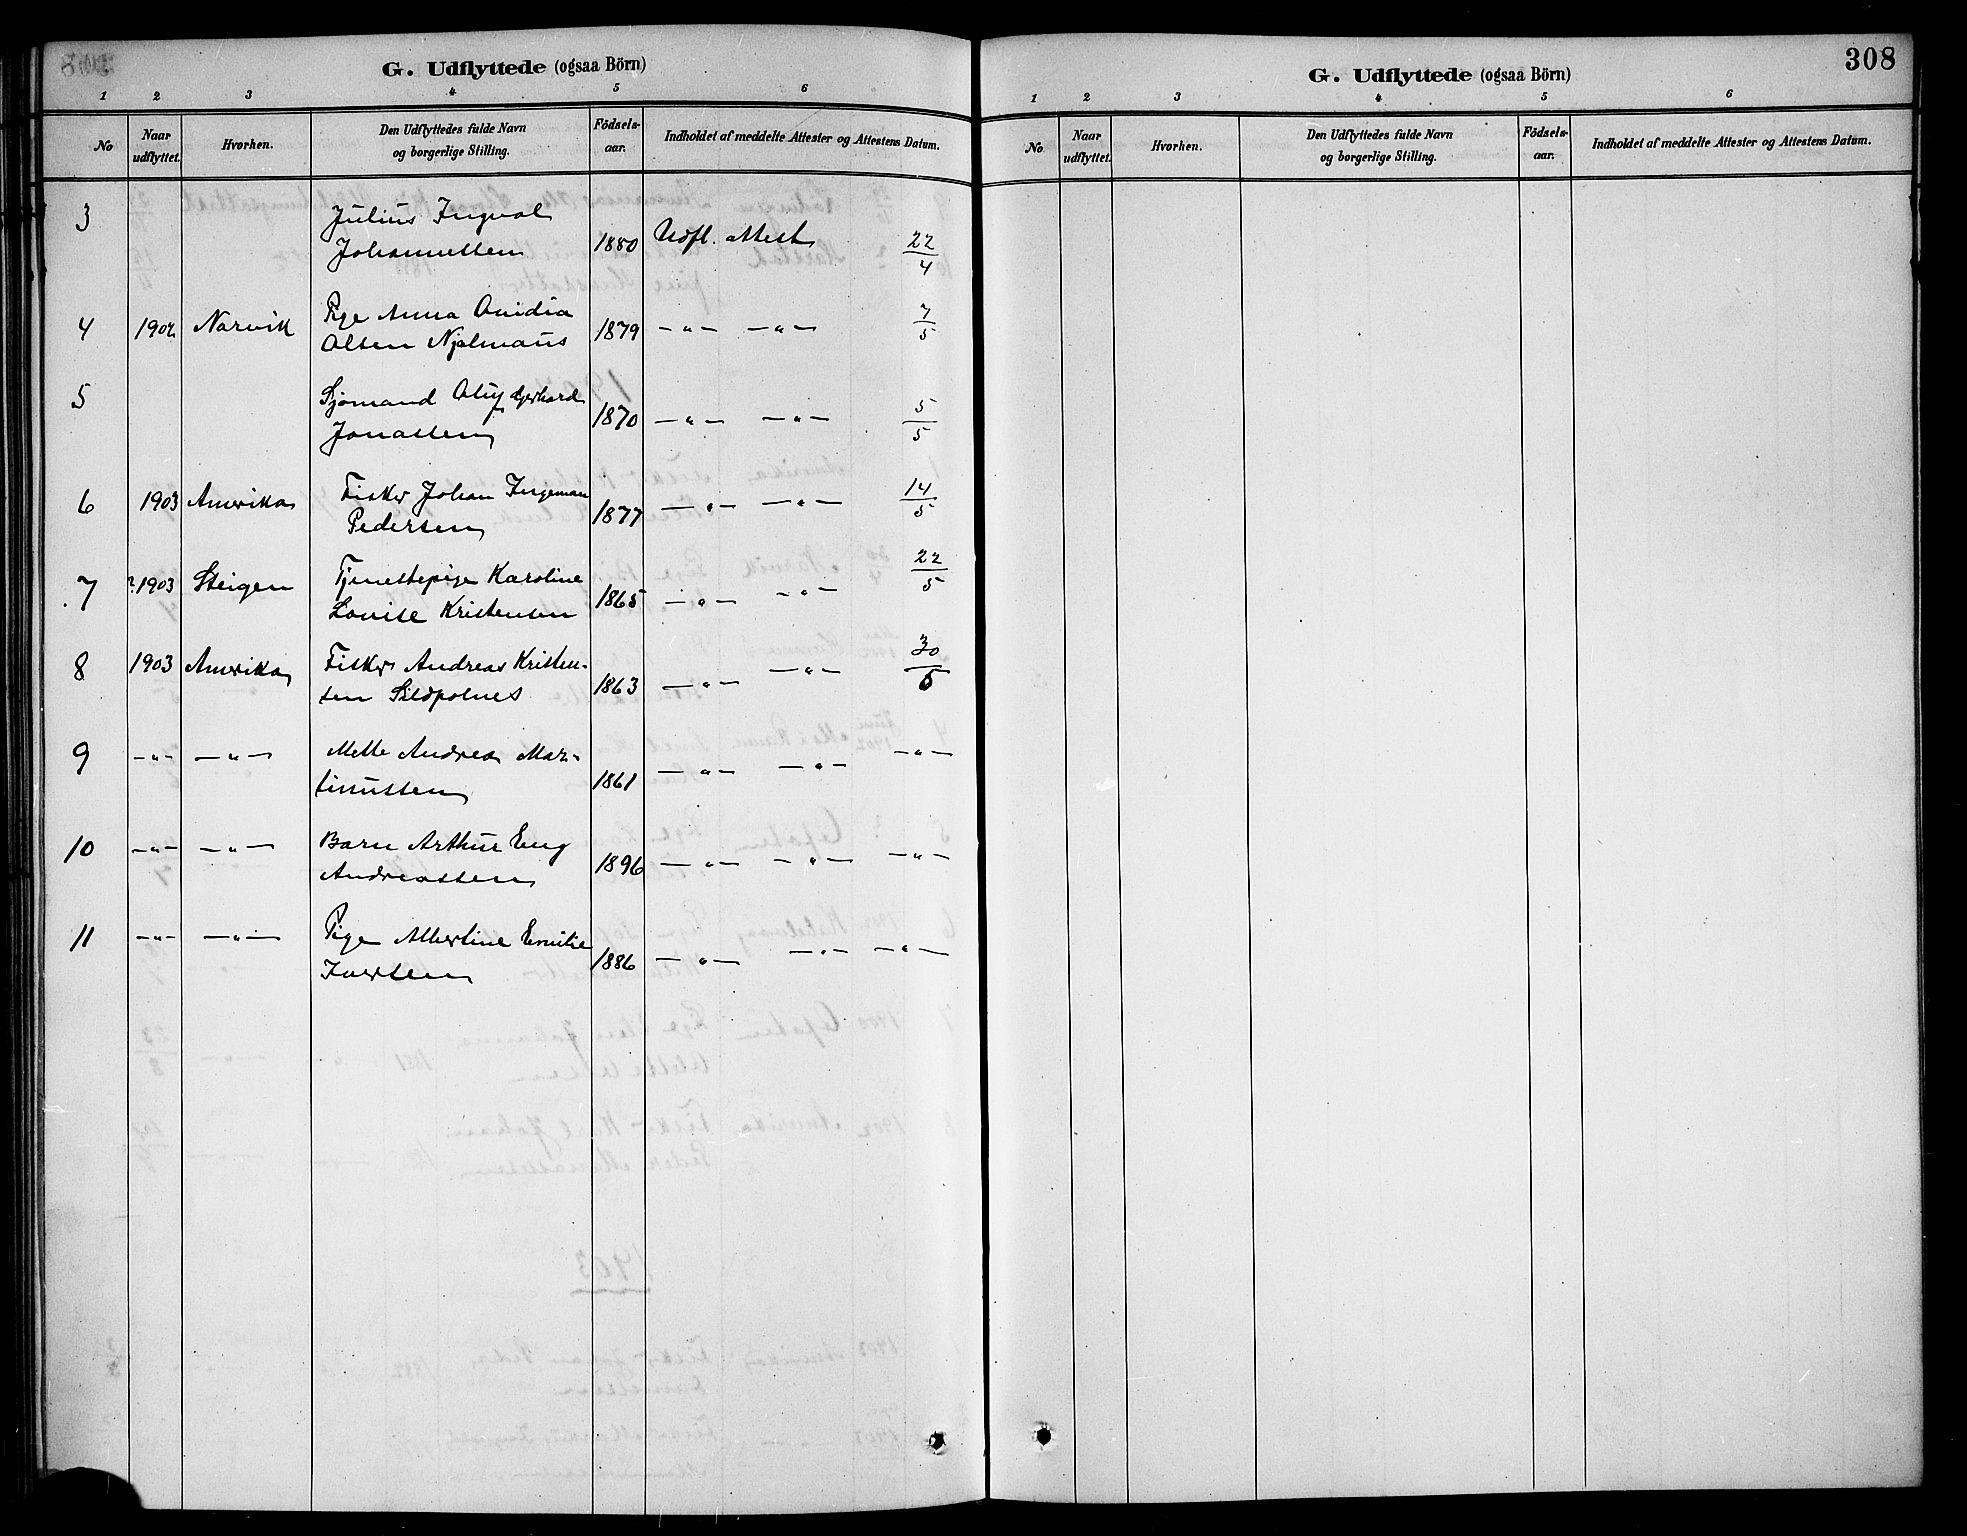 G. Udflyttede (ogsaa Börn)
1 2 3 4 5 6
No Naar udflyttet. Hvorhen. Den Udflyttedes fulde Navn og borgerlige Stilling. Födsels-aar. Indholdet af meddelte Attester og Attestens Datum.
3 Julius Ingval
Johannessen 1880 Udfl. attest 22/4
4 1902 Narvik Pige Anna Ovidia
Olsen Njelmaas 1879 —"— —"— 7/5
5 Sjömand Oluf Gerhard
Jonassen 1870 —"— —"— 5/5
6 1903 Amerika Fisker Johan Ingeman
Pedersen 1877 —"— —"— 14/5
7 ?1903 Steigen Tjenestepige Karoline
Lovise Kristensen 1865 —"— —"— 22/5
8 1903 Amerika Fisker Andreas Kristen-
sen Sildpolnes 1863 —"— —"— 30/5
9 —"— —"— Mette Andrea Mar-
tinussen 1861 —"— —"— —"—
10 —"— —"— Barn Arthur Eng
Andreassen 1896 —"— —"— —"—
11 —"— —"— Pige Albertine Emilie
Iversen 1886 —"— —"— —"—
308
G. Udflyttede (ogsaa Börn)
1 2 3 4 5 6
No Naar udflyttet. Hvorhen. Den Udflyttedes fulde Navn og borgerlige Stilling. Födsels-aar. Indholdet af meddelte Attester og Attestens Datum.